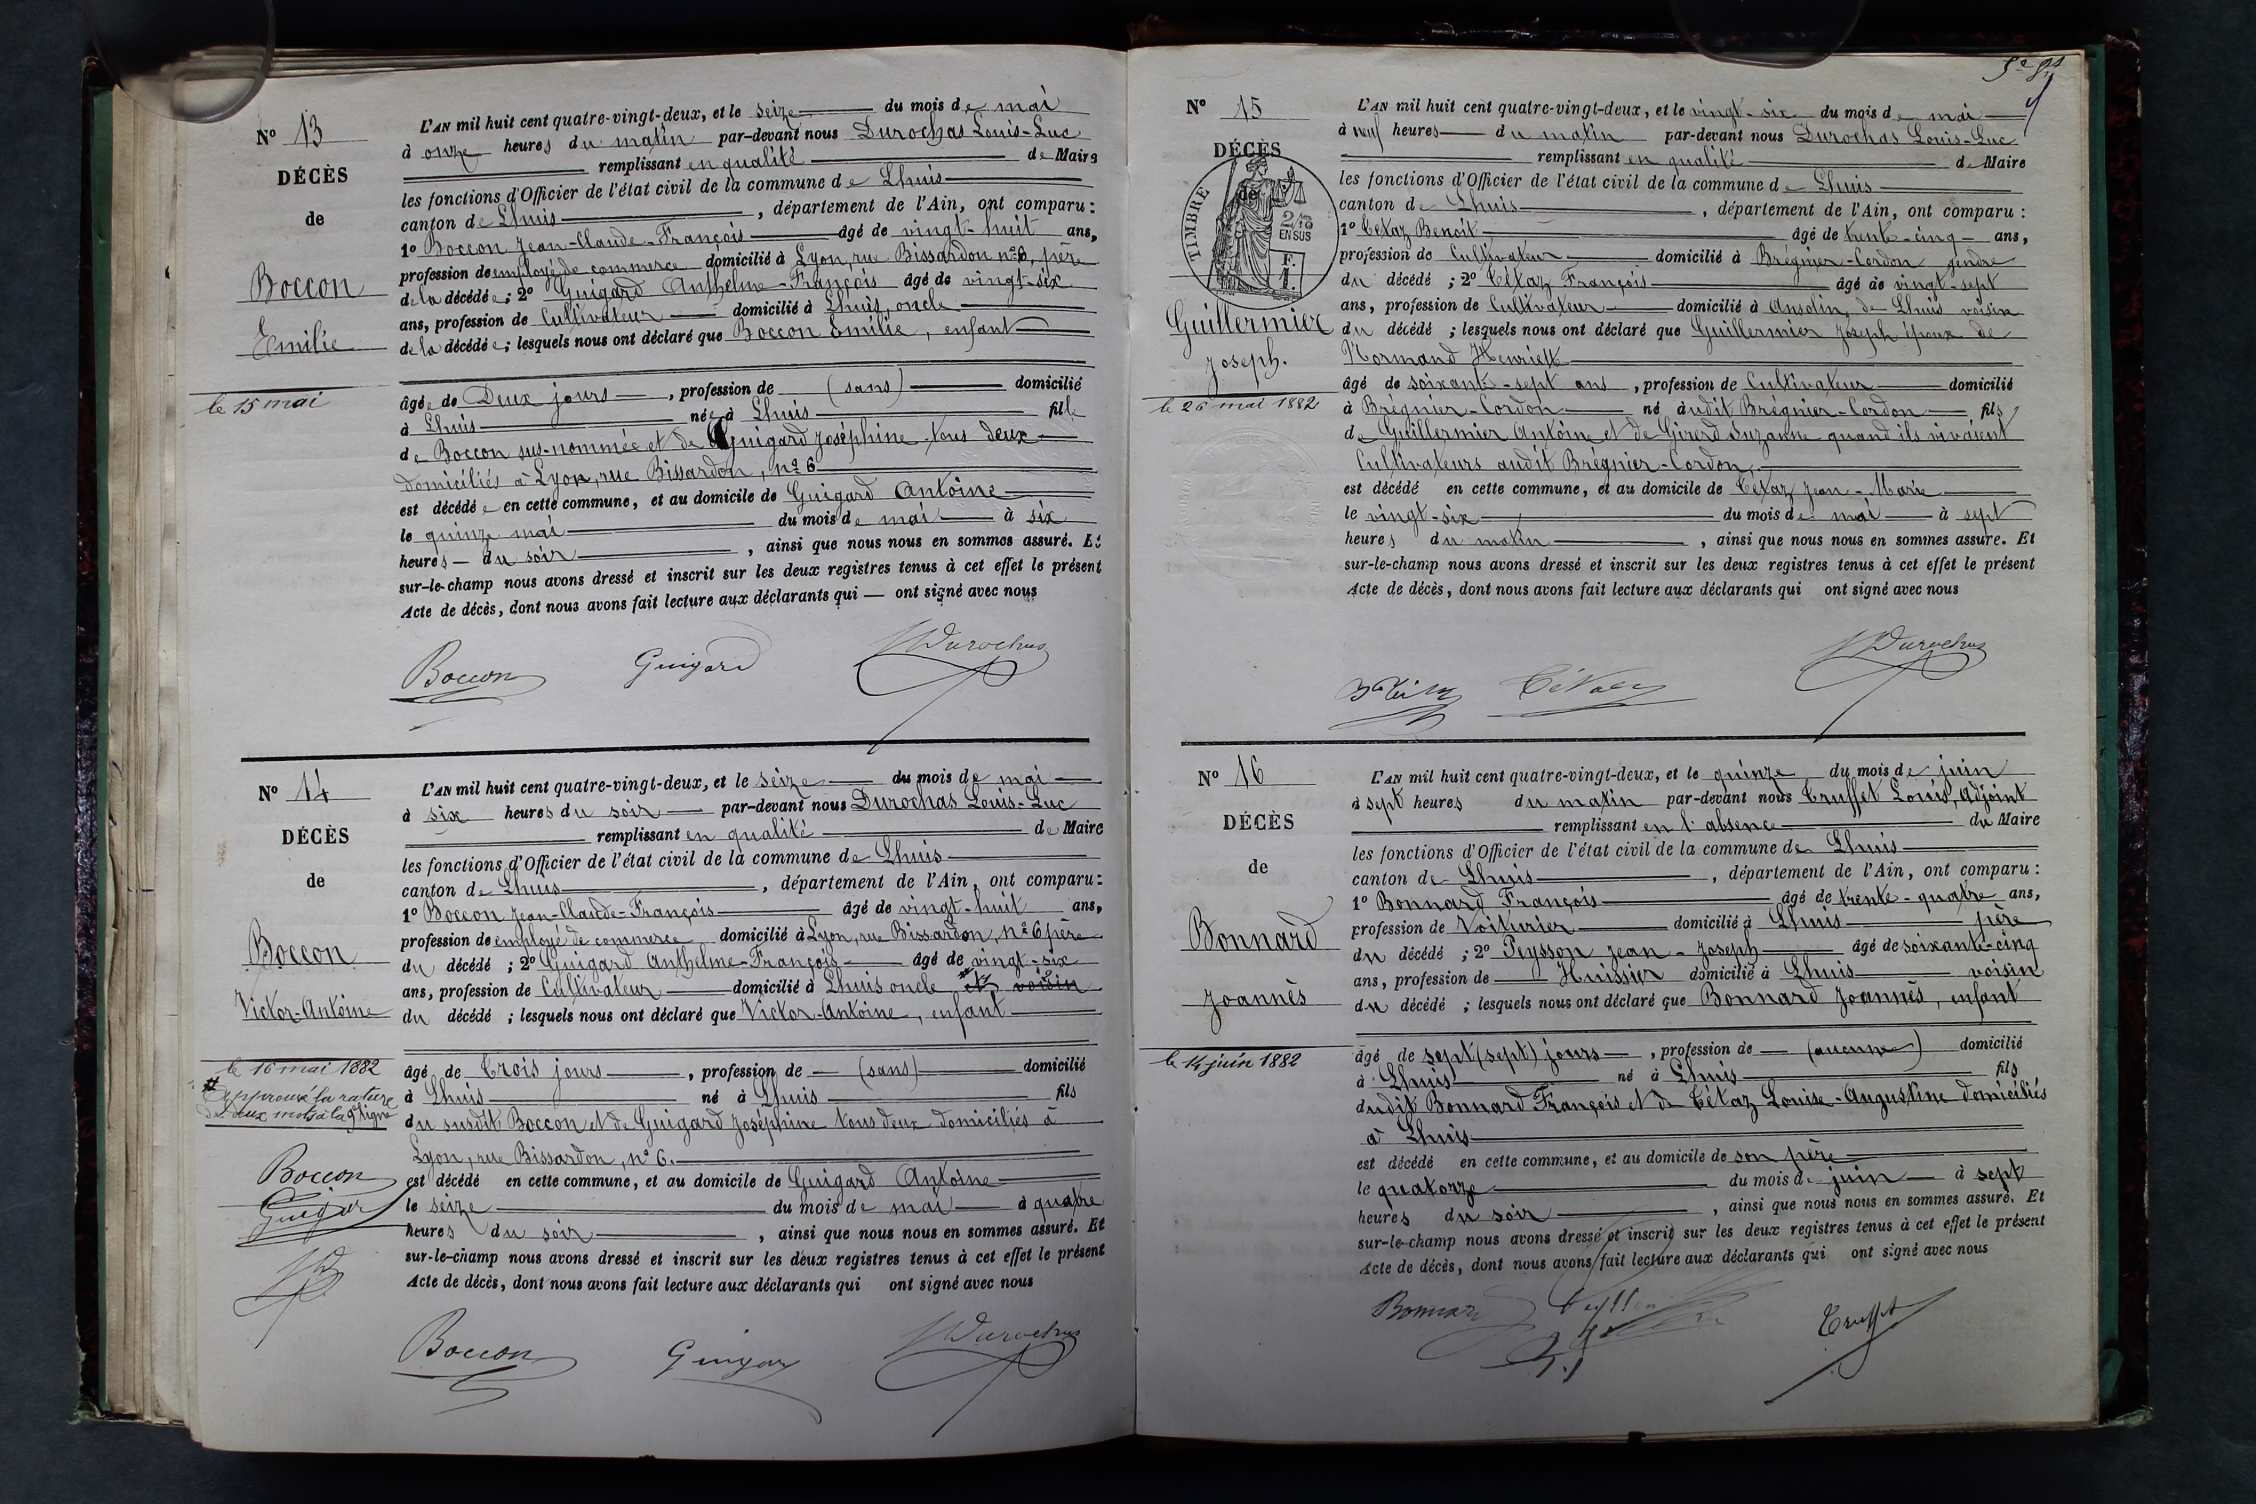 N° 13
DÉCÈS
de
Boccon
Emilie
le 15 mai
L'AN mil huit cent quatre-vingt-deux, et le seize du mois de mai
à onze heures du matin par-devant nous Durochas Louis-Luc
remplissant en qualité de Maire
les fonctions d'Officier de l'état civil de la commune de Lhuis
canton de Lhuis, département de l'Ain, ont comparu :
1° Boccon Jean-Claude-François âgé de vingt-huit ans,
profession de employé de commerce domicilié à Lyon, rue Bissardon n° 6, père
de la décédée ; 2° Guigard Anthelme-François âgé de vingt-six
ans, profession de Cultivateur domicilié à Lhuis, oncle
de la décédée ; lesquels nous ont déclaré que Boccon Emilie, enfant
âgée de Deux jours, profession de (sans) domicilié
à Lhuis née à Lhuis fille
de Boccon sus-nommée et de Guigard Joséphine tous deux
domiciliés à Lyon, rue Bissardon, n° 6
est décédée en cette commune, et au domicile de Guigard Antoine
le quinze mai du mois de mai à six
heures du soir, ainsi que nous nous en sommes assuré. Et
sur-le-champ nous avons dressé et inscrit sur les deux registres tenus à cet effet le présent
Acte de décès, dont nous avons fait lecture aux déclarants qui — ont signé avec nous
Boccon Guigard Durochas
N° 14
DÉCÈS
de
Boccon
Victor-Antoine
le 16 mai 1882
# Approuvé la rature
de deux mots à la 9e ligne
Boccon
Guigar
L'AN mil huit cent quatre-vingt-deux, et le seize du mois de mai
à six heures du soir par-devant nous Durochas Louis-Luc
remplissant en qualité de Maire
les fonctions d'Officier de l'état civil de la commune de Lhuis
canton de Lhuis, département de l'Ain, ont comparu :
1° Boccon Jean-Claude-François âgé de vingt-huit ans,
profession de employé de commerce domicilié à Lyon, rue Bissardon, n° 6 père
du décédé ; 2° Guigard Anthelme-François âgé de vingt-six
ans, profession de Cultivateur domicilié à Lhuis oncle # et voisin
du décédé ; lesquels nous ont déclaré que Victor-Antoine, enfant
âgé de Trois jours, profession de — (sans) domicilié
à Lhuis né à Lhuis fils
du susdit Boccon et de Guigard Joséphine tous deux domiciliés à
Lyon, rue Bissardon, n° 6.
est décédé en cette commune, et au domicile de Guigard Antoine
le seize du mois de mai à quatre
heures du soir, ainsi que nous nous en sommes assuré. Et
sur-le-champ nous avons dressé et inscrit sur les deux registres tenus à cet effet le présent
Acte de décès, dont nous avons fait lecture aux déclarants qui ont signé avec nous
Boccon Guigar Durochas
N° 15
DÉCÈS
de
TIMBRE
2/10
EN SUS
F.
1.
Guillermier
Joseph.
le 26 mai 1882
L'AN mil huit cent quatre-vingt-deux, et le vingt-six du mois de mai
à neuf heures du matin par-devant nous Durochas Louis-Luc
remplissant en qualité de Maire
les fonctions d'Officier de l'état civil de la commune de Lhuis
canton de Lhuis, département de l'Ain, ont comparu :
1° Tétaz Benoit âgé de trente-cinq ans,
profession de Cultivateur domicilié à Brégnier-Cordon gendre
du décédé ; 2° Tétaz François âgé de vingt-sept
ans, profession de Cultivateur domicilié à Ansolin, de Lhuis voisin
du décédé ; lesquels nous ont déclaré que Guillermier Joseph époux de
Normand Henriette
âgé de soixante-sept ans, profession de Cultivateur domicilié
à Brégnier-Cordon né àudit Brégnier-Cordon fils
de Guillermier Antoine et de Girerd Suzanne quand ils vivaient
Cultivateurs audit Brégnier-Cordon,
est décédé en cette commune, et au domicile de Tétaz Jean-Marie
le vingt-six du mois de mai à sept
heures du matin, ainsi que nous nous en sommes assuré. Et
sur-le-champ nous avons dressé et inscrit sur les deux registres tenus à cet effet le présent
Acte de décès, dont nous avons fait lecture aux déclarants qui ont signé avec nous
Durochas
N° 16
DÉCÈS
de
Bonnard
Joannès
le 14 juin 1882
L'AN mil huit cent quatre-vingt-deux, et le quinze du mois de juin
à sept heures du matin par-devant nous Truffet Louis, Adjoint
remplissant en l'absence du Maire
les fonctions d'Officier de l'état civil de la commune de Lhuis
canton de Lhuis, département de l'Ain, ont comparu :
1° Bonnard François âgé de trente-quatre ans,
profession de Voiturier domicilié à Lhuis père
du décédé ; 2° Peysson Jean-Joseph âgé de soixante-cinq
ans, profession de Huissier domicilié à Lhuis voisin
du décédé ; lesquels nous ont déclaré que Bonnard Joannès, enfant
âgé de sept (sept) jours, profession de — (aucune) domicilié
à Lhuis né à Lhuis fils
dudit Bonnard François et de Tétaz Louise-Augustine domiciliés
à Lhuis
est décédé en cette commune, et au domicile de son père
le quatorze du mois de juin à sept
heures du soir, ainsi que nous nous en sommes assuré. Et
sur-le-champ nous avons dressé et inscrit sur les deux registres tenus à cet effet le présent
Acte de décès, dont nous avons fait lecture aux déclarants qui ont signé avec nous
Bonnard Truffet